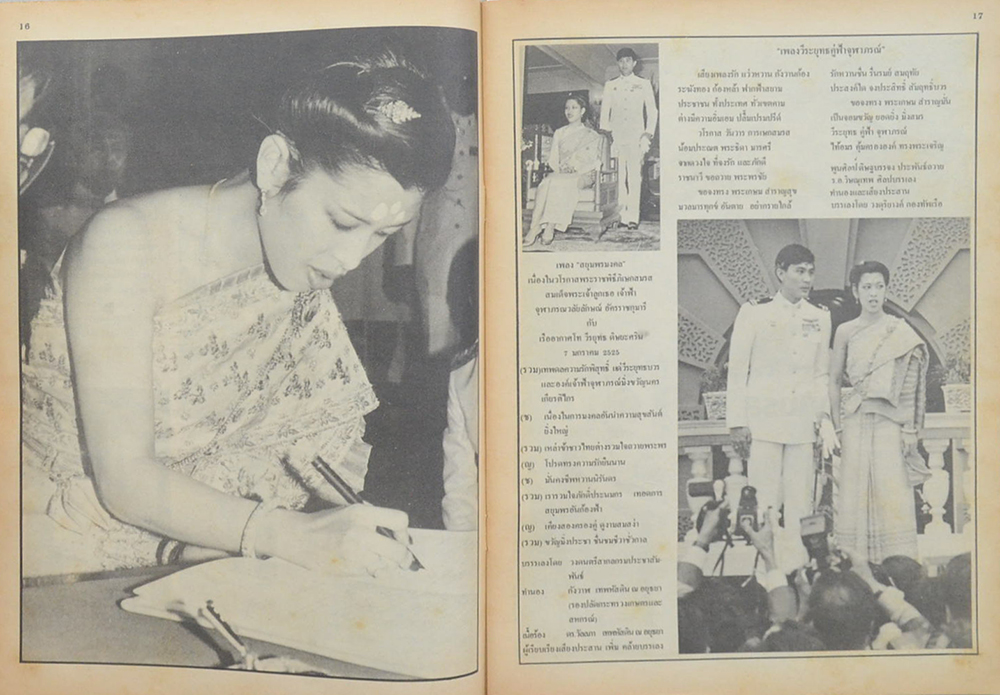 16
17
"เพลงวีระยุทธคู่ฟ้าจุฬาภรณ์"
เสียงเพลงรัก แว่วหวาน กังวานก้อง
ระฆังทอง ก้องหล้า ฟากฟ้าสยาม
ประชาชน ทั้งประเทศ ทั่วเขตคาม
ต่างมีความอิ่มเอม ปลื้มเปรมปรีดิ์
วโรกาส วันวาร การเษกสมรส
น้อมประณต พระธิดา มารศรี
จงรัก และภักดี
ราชนารี ขอถวาย พระพรชัย
ขอจงทรง พระเกษม สำราญสุข
มวลมารทุกข์ อันตราย อย่ากรายใกล้
รักหวานชื่น รื่นรมย์ สมฤทัย
ประสงค์ใด จงประสิทธิ์ สัมฤทธิ์บวร
ขอจงทรง พระเกษม สำราญมั่น
เป็นจอมขวัญ ยอดยิ่ง มิ่งสมร
วีระยุทธ คู่ฟ้า จุฬาภรณ์
ไท้อมร คุ้มครององค์ ทรงพระเจริญ
พูนศิลป์ดิษฐบรรจง ประพันธ์ถวาย
ร.อ.วิษณุเทพ ศิลปบรรเลง
ทำนองและเสียงประสาน
บรรเลงโดย วงดุริยางค์ กองทัพเรือ
เพลง "สยุมพรมงคล"
เนื่องในวโรกาสพระราชพิธีภิเษกสมรส
สมเด็จพระเจ้าลูกเธอ เจ้าฟ้า
จุฬาภรณวลัยลักษณ์ อัครราชกุมารี
กับ
เรืออากาศโท วีระยุทธ ดิษยะศริน
7 มกราคม 2525
(รวม) เทพดลความรักพิสุทธิ์ แด่วีระยุทธบวร
และองค์เจ้าฟ้าจุฬาภรณ์มิ่งขวัญนคร
เกียรติไกร
(ช) เนื่องในการมงคลอันนำความสุขสันต์
ยิ่งใหญ่
(รวม) เหล่าข้าชาวไทยต่างรวมใจถวายพระพร
(ญ) โปรดทรงความรักยืนนาน
(ช) มั่นคงชัพหวานนิรันดร
(รวม) เรารวมใจภักดิ์ประนมกร เทอดการ
สยุมพรอันก้องฟ้า
(ญ) เคียงสองครองคู่ ดูงามสมสง่า
(รวม) ขวัญมิ่งประชา ชื่นชมชีวาชั่วกาล
บรรเลงโดย วงดนตรีสากลกรมประชาสัม
พันธ์
ทำนอง กังวาฬ เทพหัสดิน ณ อยุธยา
(รองปลัดกระทรวงเกษตรและ
สหกรณ์)
เนื้อร้อง ดร.วัลลภา เทพหัสดิน ณ อยุธยา
ผู้เรียบเรียงเสียงประสาน เพิ่ม คล้ายบรรเลง